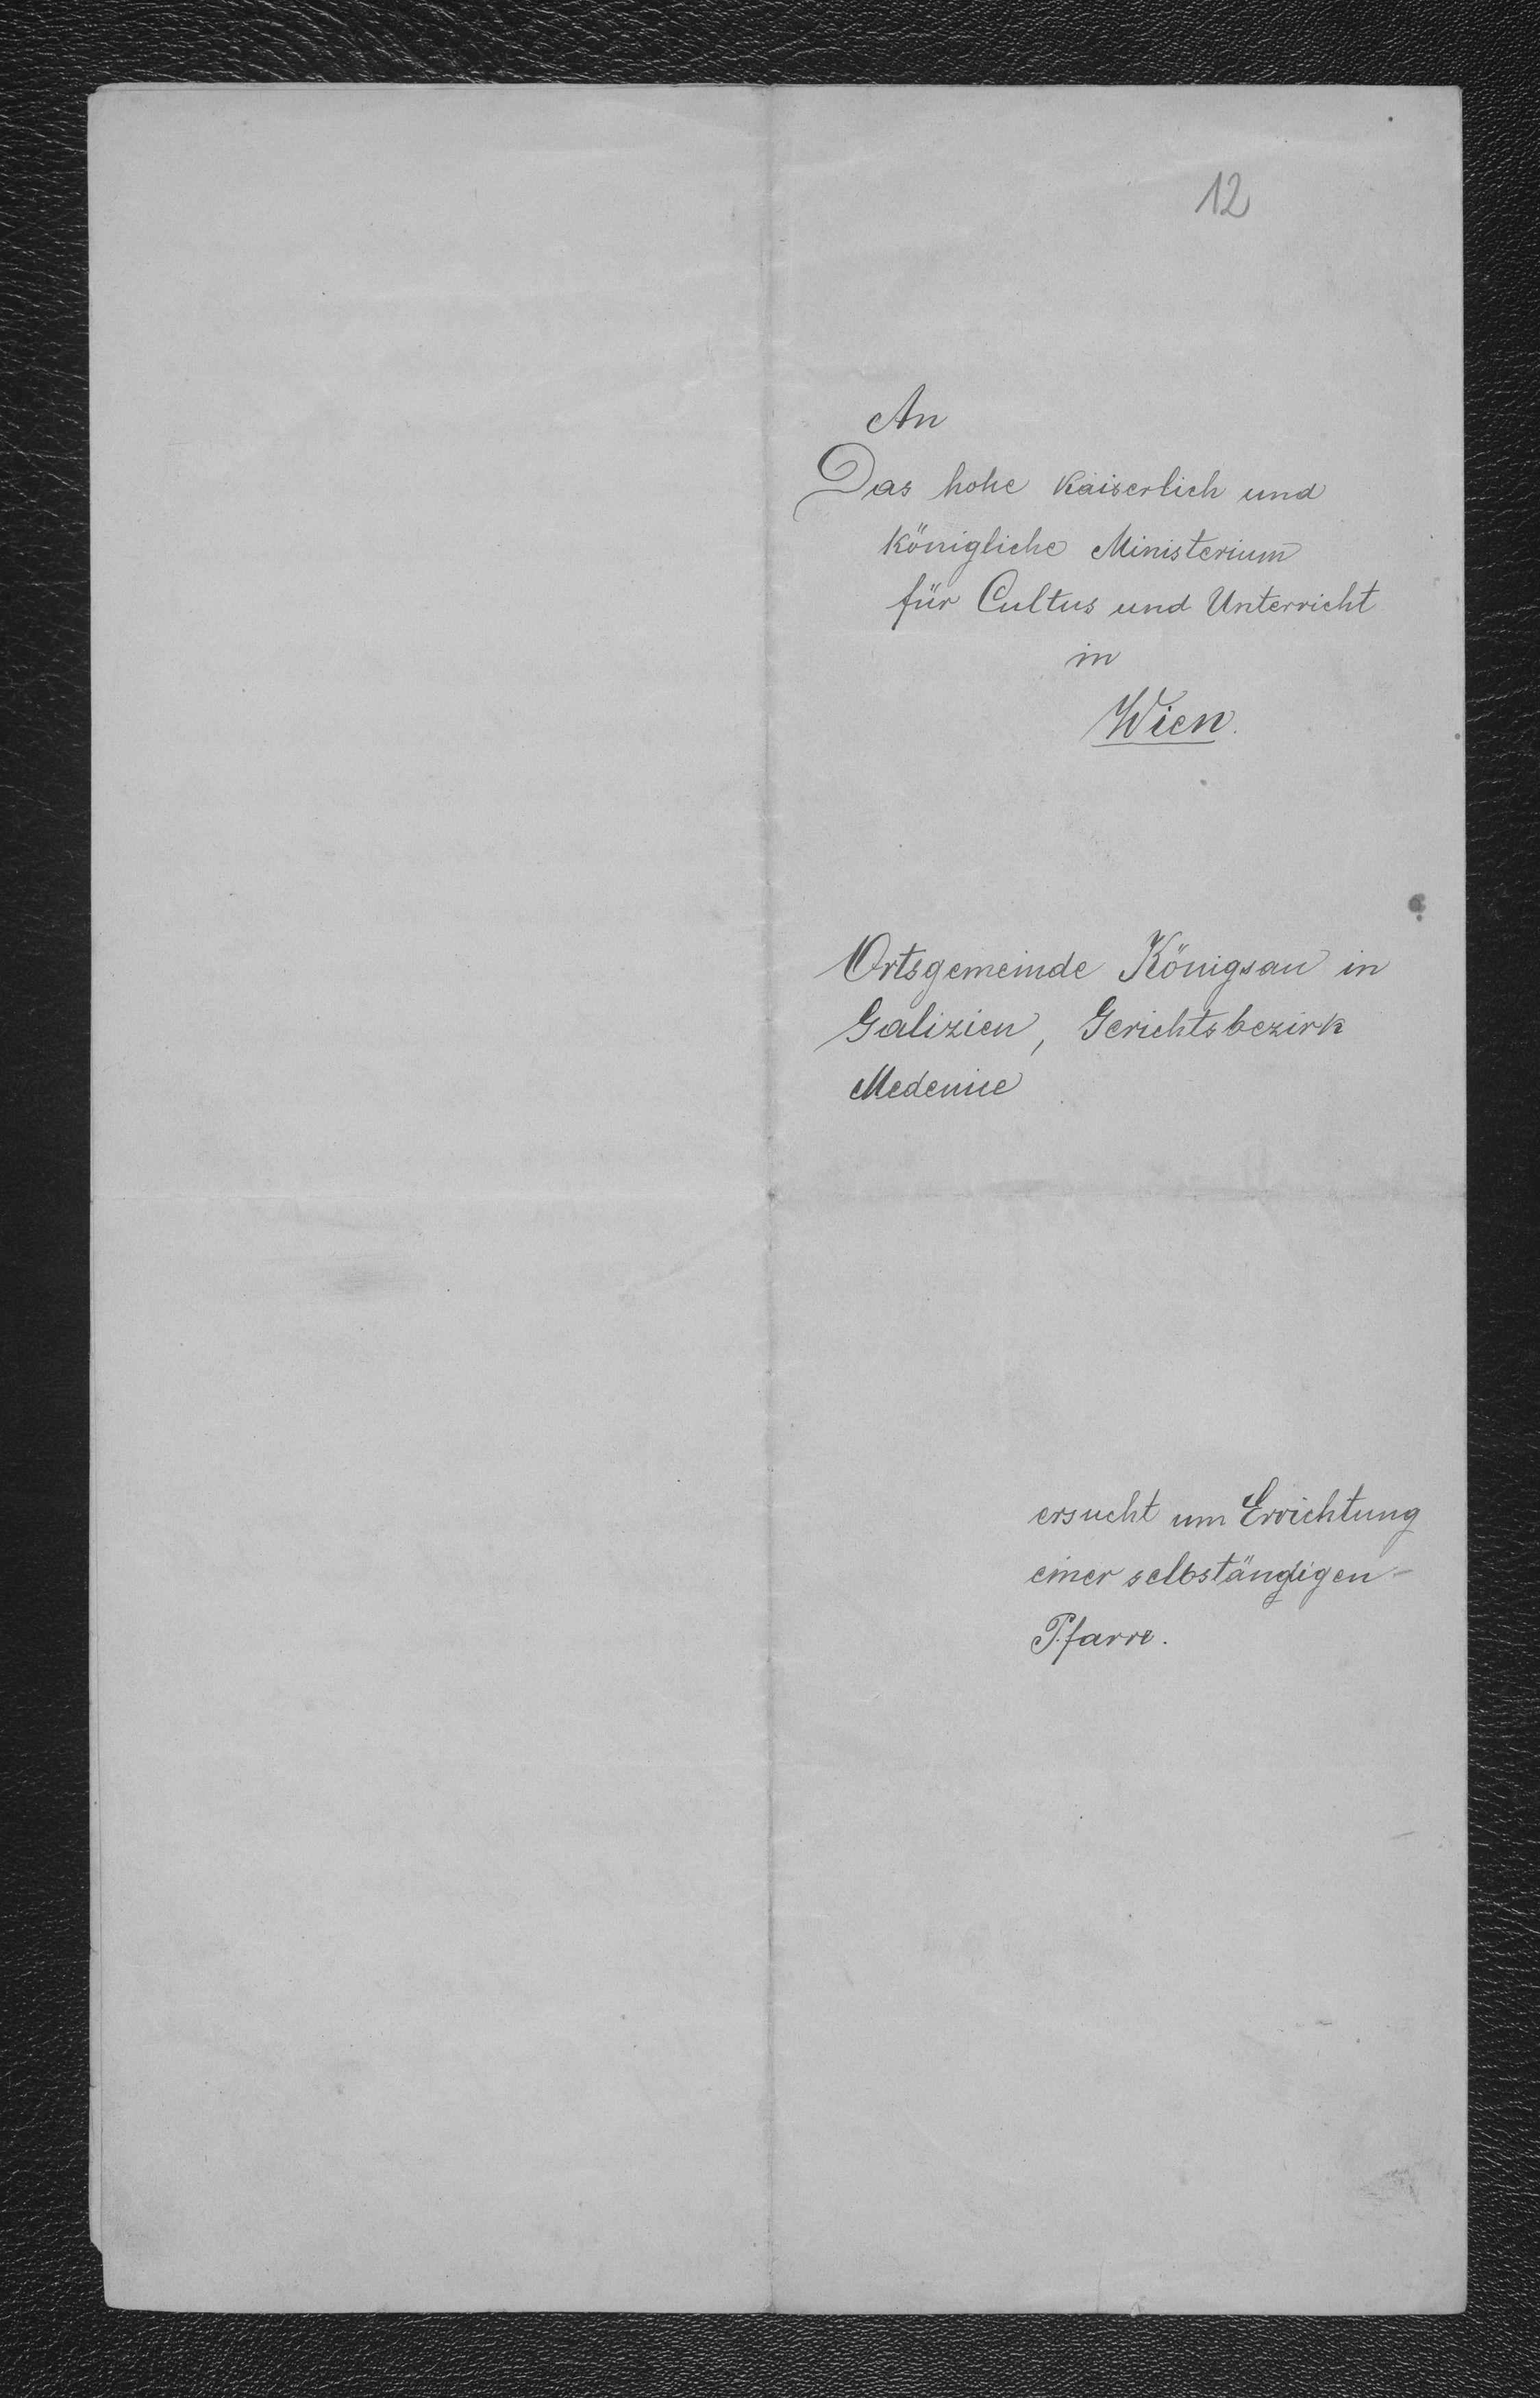 12
An
Das hohe kaiserlich und
königliche Ministerium
für Cultus und Unterricht
in
Wien.
Ortsgemeinde Königsau in
Galizien, Gerichtsbezirk
Medenice
ersucht um Errichtung
einer selbständigen
Pfarre.